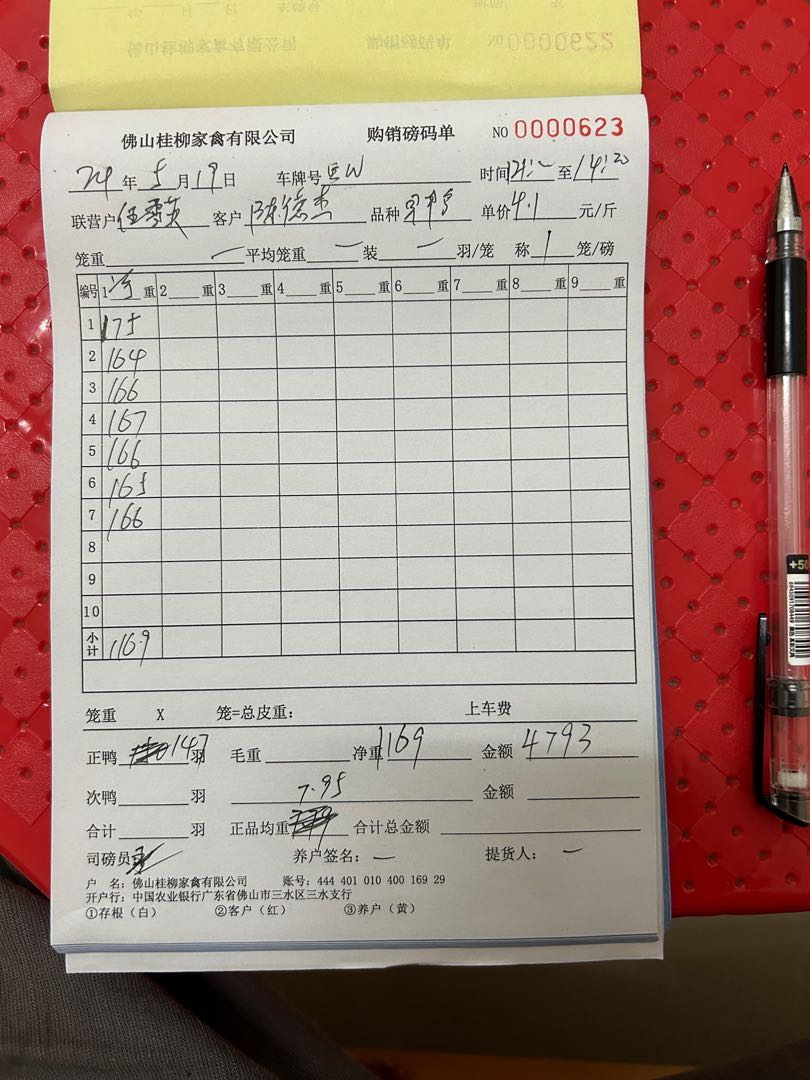 佛山桂柳家禽有限公司 购销磅码单 NO 0000622
佛山桂柳家禽有限公司 购销磅码单 NO 0000623
24 年 5 月 19 日 车牌号 时间 至 14:20
联营户 客户 陈德杰 品种 单价 4.1 元/斤
笼重 一 平均笼重 一 装 一 羽/笼 称 1 笼/磅
编号 1 重 2 重 3 重 4 重 5 重 6 重 7 重 8 重 9 重
1 175
2 164
3 166
4 167
5 166
6 165
7 166
8
9
10
小计 1169
笼重 X 笼=总皮重: 上车费
正鸭 147 羽 毛重 净重 1169 金额 4793
次鸭 羽 7.95 金额
合计 羽 正品均重 合计总金额
司磅员 养户签名: 一 提货人: 一
户 名: 佛山桂柳家禽有限公司 账号: 444 401 010 400 169 29
开户行: 中国农业银行广东省佛山市三水区三水支行
①存根(白) ②客户(红) ③养户(黄)
+50